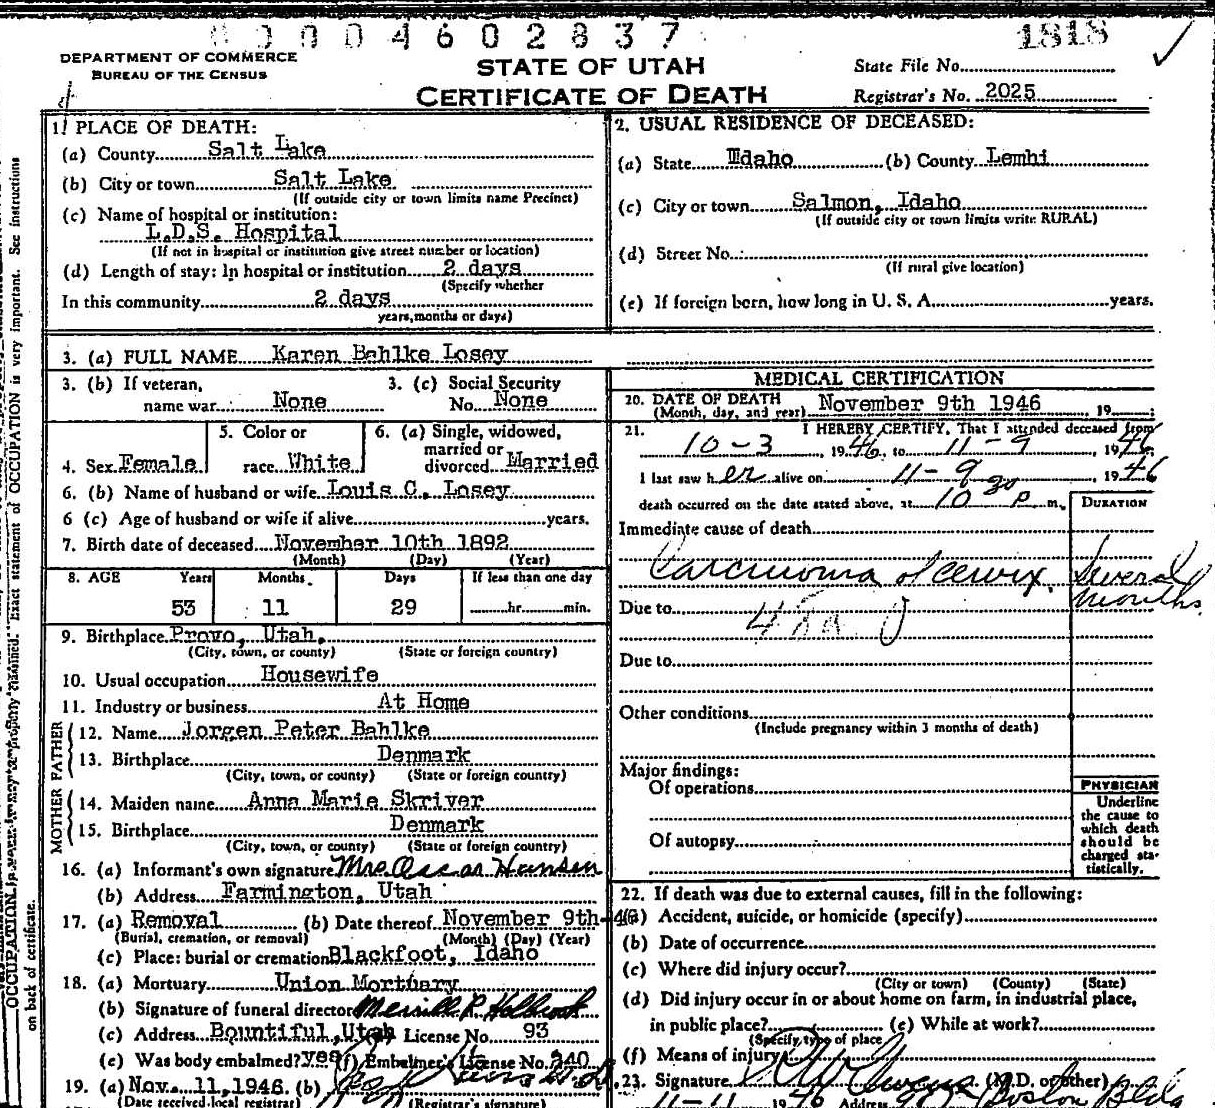 0 0 0 0 4 6 0 2 8 3 7
1818
DEPARTMENT OF COMMERCE
BUREAU OF THE CENSUS
STATE OF UTAH
CERTIFICATE OF DEATH
State File No.
Registrar's No. 2025
1. PLACE OF DEATH:
(a) County Salt Lake
(b) City or town Salt Lake
(If outside city or town limits name Precinct)
(c) Name of hospital or institution:
L.D.S. Hospital
(If not in hospital or institution give street number or location)
(d) Length of stay: In hospital or institution 2 days
(Specify whether
In this community 2 days
years, months or days)
2. USUAL RESIDENCE OF DECEASED:
(a) State Idaho (b) County Lemhi
(c) City or town Salmon, Idaho
(If outside city or town limits write RURAL)
(d) Street No.
(If rural give location)
(e) If foreign born, how long in U. S. A. years.
3. (a) FULL NAME Karen Bahlke Losey
3. (b) If veteran,
name war None
3. (c) Social Security
No. None
4. Sex Female
5. Color or
race White
6. (a) Single, widowed,
married or
divorced Married
6. (b) Name of husband or wife Louis C. Losey
6 (c) Age of husband or wife if alive years.
7. Birth date of deceased November 10th 1892
(Month) (Day) (Year)
8. AGE Years Months Days If less than one day
53 11 29 hr. min.
9. Birthplace Provo, Utah,
(City, town, or county) (State or foreign country)
10. Usual occupation Housewife
11. Industry or business At Home
FATHER
12. Name Jorgen Peter Bahlke
13. Birthplace Denmark
(City, town, or county) (State or foreign country)
MOTHER
14. Maiden name Anna Marie Skriver
15. Birthplace Denmark
(City, town, or county) (State or foreign country)
16. (a) Informant's own signature Mrs Oscar Hansen
(b) Address Farmington, Utah
17. (a) Removal (b) Date thereof November 9th-46
(Burial, cremation, or removal) (Month) (Day) (Year)
(c) Place: burial or cremation Blackfoot, Idaho
18. (a) Mortuary Union Mortuary
(b) Signature of funeral director Merrill R Holbrook
(c) Address Bountiful, Utah License No. 93
(e) Was body embalmed? yes (f) Embalmer's License No. 340
19. (a) Nov. 11, 1946 (b)
(Date received local registrar) (Registrar's signature)
MEDICAL CERTIFICATION
20. DATE OF DEATH
(Month, day, and year) November 9th 1946, 19 ;
21. I HEREBY CERTIFY, That I attended deceased from
10-3, 1946, to 11-9, 1946;
I last saw her alive on 11-9, 1946
death occurred on the date stated above, at 10 30 P m.
DURATION
Immediate cause of death
Carcinoma of cervix. Several
months.
Due to
Due to
Other conditions
(Include pregnancy within 3 months of death)
Major findings:
Of operations
Of autopsy
PHYSICIAN
Underline
the cause to
which death
should be
charged sta-
tistically.
22. If death was due to external causes, fill in the following:
(a) Accident, suicide, or homicide (specify)
(b) Date of occurrence
(c) Where did injury occur?
(City or town) (County) (State)
(d) Did injury occur in or about home on farm, in industrial place,
in public place? (e) While at work?
(Specify type of place
(f) Means of injury
23. Signature (M.D. or other)
11-11 1946 Address Boston Bldg
OCCUPATION is very important. See instructions
Exact statement of
on back of certificate.